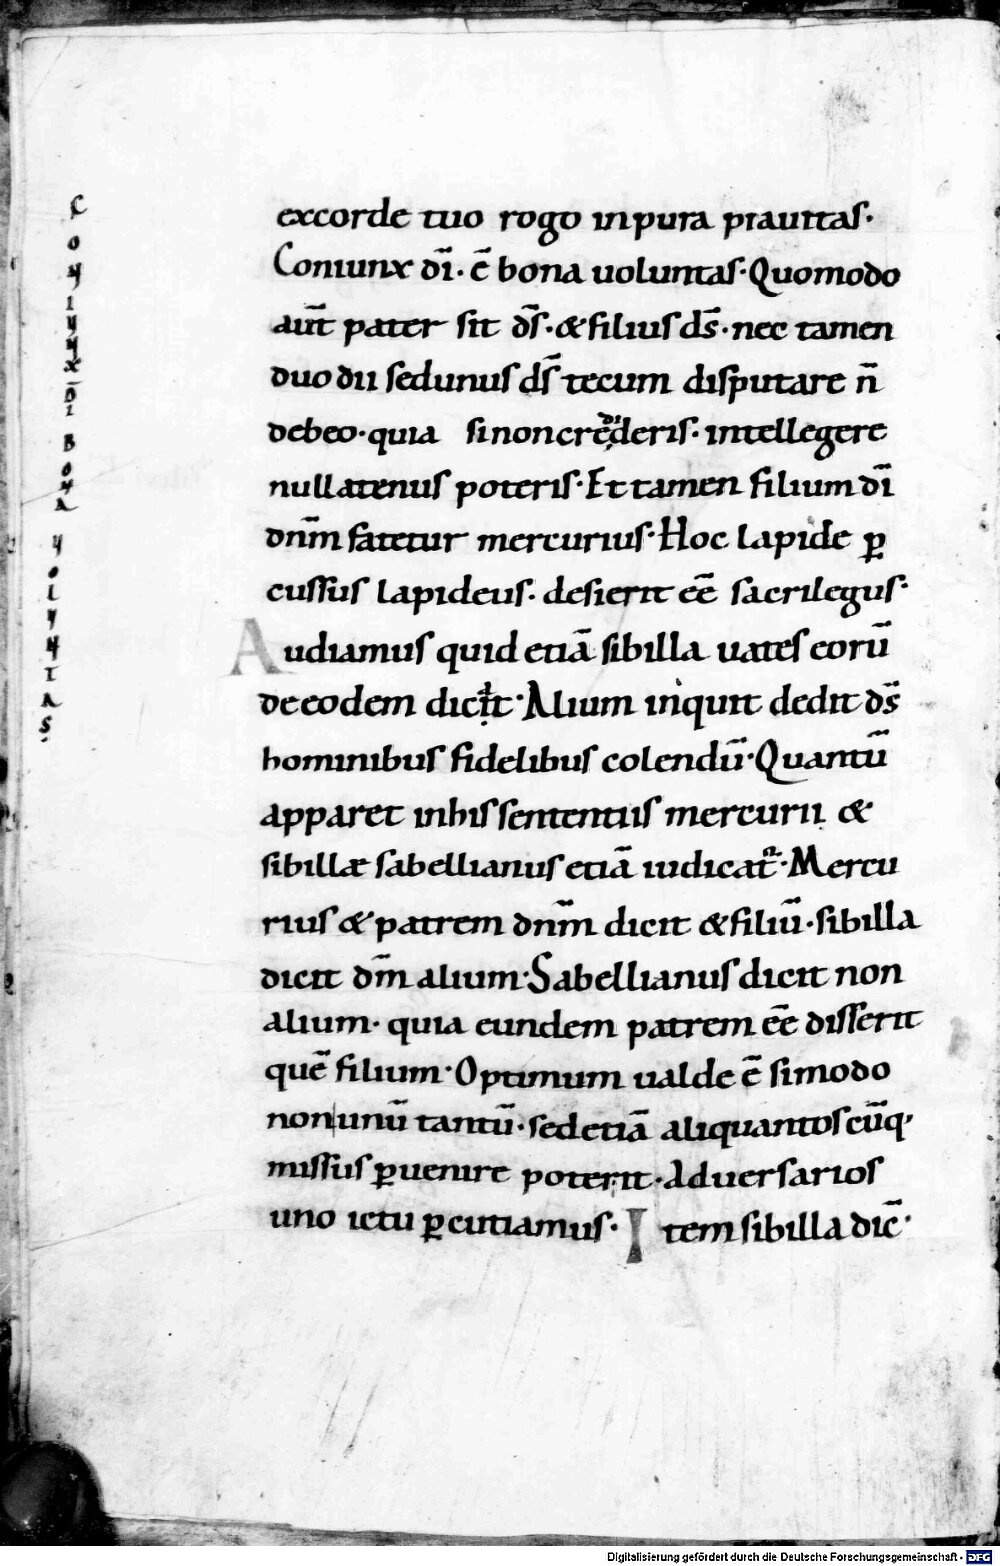 C
O
N
I
U
N
X
D̄I
B
O
N
A
V
O
L
V
N
T
A
S
excorde tuo rogo inpura prauitas·
Coniunx dī· ē bona uoluntas· Quomodo
aut̄ pater sit ds̄· & filius ds̄· nec tamen
duo dii sedunus ds̄ tecum disputare n̄
debeo· quia sinoncredideris· intellegere
nullatenus poteris· Et tamen filium dī
dnm̄ fatetur mercurius· Hoc lapide p̄
cussus lapideus· desierit eē sacrilegus·
Audiamus quid etiā sibilla uates eorū
de eodem dicat· Alium inquit dedit ds̄
hominibus fidelibus colendū· Quantū
apparet inhis sententiis mercurii &
sibillæ sabellianus etiā iudicat̄· Mercu
rius & patrem dnm̄ dicit & filiū· sibilla
dicit dm̄ alium· Sabellianus dicit non
alium· quia eundem patrem eē disserit
quē filium· Optimum ualde ē simodo
non unū tantū· sed etiā aliquantos cūq·
missus p̄uenire poterit· Aduersarios
uno ictu p̄cutiamus· Item sibilla dic̄·
Digitalisierung gefördert durch die Deutsche Forschungsgemeinschaft - DFG